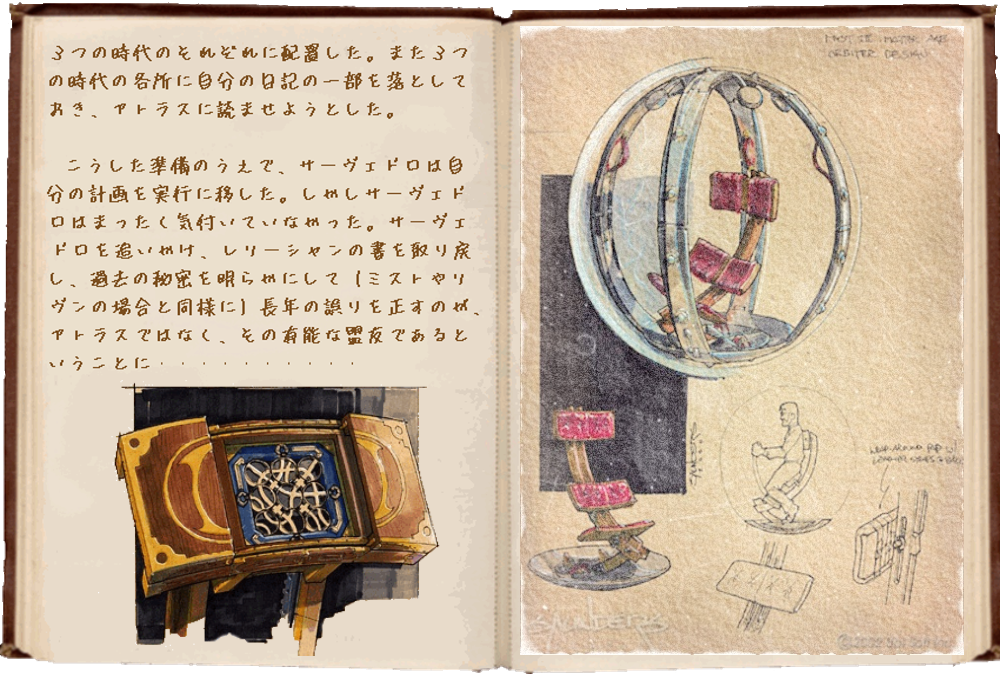 3つの時代のそれぞれに配置した。また3つ
の時代の各所に自分の日記の一部を落として
おき、アトラスに読ませようとした。
こうした準備のうえで、サーヴェドロは自
分の計画を実行に移した。しかしサーヴェド
ロはまったく気付いていなかった。サーヴェ
ドロを追いかけ、レリーシャンの書を取り戻
し、過去の秘密を明らかにして(ミストやリ
ヴンの場合と同様に)長年の誤りを正すのが、
アトラスではなく、その有能な盟友であると
いうことに・・・・・・・・・・
ORBITER DESIGN
SAUNTERS